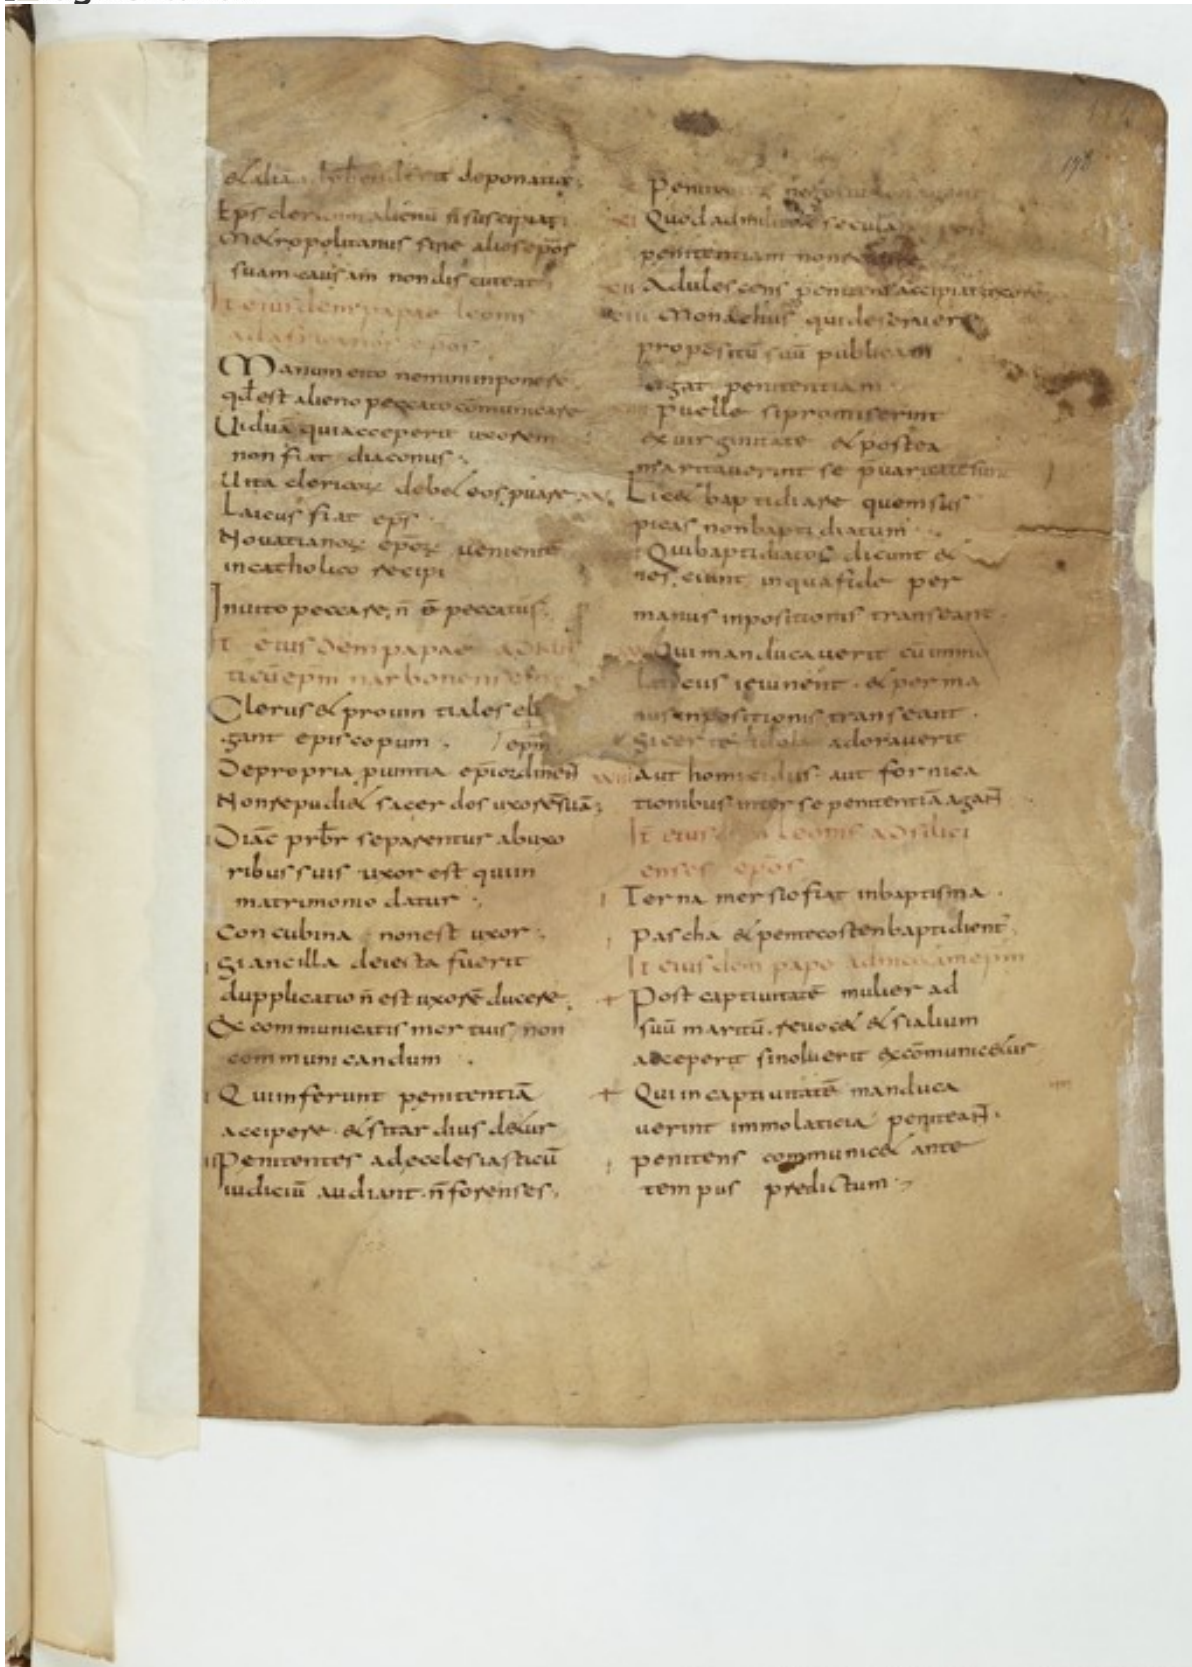 198
deponatur
Eps clericum alienu n suscipiat
Metropolitanus sine alios epos
suam causam non discuteat
It eiusdem papae leonis
ad africanos epos
Manum cito nemini inponere
qd est alieno peccato cōmunicare
Uiduā qui acceperit uxorem
non fiat diaconus
Uita clericoꝝ debet eos
Laicus fiat eps
Nouatianoꝝ epoꝝ ueniente
in catholico recipi
Inuito peccare, n̄ peccatus
It eiusdem papae ad rus
ticū epm narbonensem
Clerus & prouintiales eli
gant episcopum . / epm
De propria puntia epi ordinen̄
Non repudi& sacerdos uxorē suā;
Diāc prbr separentur ab uxo
ribus suis uxor est qui in
matrimonio datur .,
Concubina non est uxor .,
Si ancilla deiecta fuerit
dupplicatio n̄ est uxorē ducere.
Excommunicatis mortuis non
communicandum .
Qui inferunt penitentiā
accipere & si tardius d&ur
Penitentes ad ecclesiasticū
iudiciū audiant n̄ forenses.
Penit
Quod ad militiā secula
penitentiam non
Adulescens penitens accipiat uxorē
Monachus qui deseruere
propositū suū publicam
agat penitentiam
Puelle si promiserint
& uirginitate & postea
maritauerint se
Lic& baptidiare quem sus
picas non baptidiatum
Qui baptidiatos dicunt &
nesciunt in qua fide per
manus inpositionis transeant.
Qui manducauerit
Laicus ieiunent . & per ma
nus inpositionis transeant .
Si certe idola adorauerit
aut homicidus aut fornica
tionibus inter se penitentiā agan̄
It eiusdem Leonis ad silici
enses epos
Terna mersio fiat in baptisma .
Pascha & pentecosten baptidient
It eiusdem papo ad
+ Post captiuitatē mulier ad
suū maritū reuoc& & si alium
acceperit si noluerit excōmunic&ur
+ Qui in captiuitatē manduca
uerint immolaticia peniteān.
penitens communic& ante
tempus predictum .,